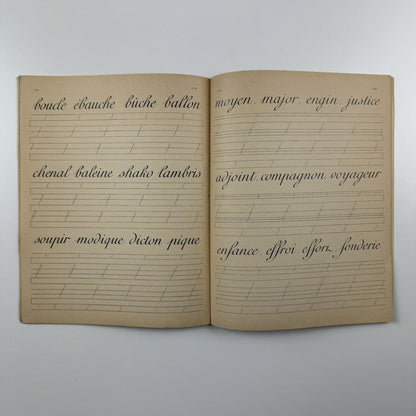 boucle ébauche bûche ballon
chenal baleine shako lambris
soupir modique dicton pique
moyen major engin justice
adjoint compagnon voyageur
enfance effroi effort fonderie